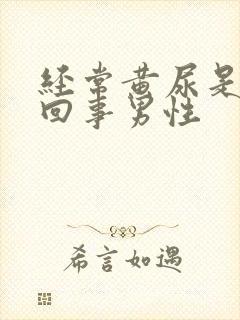 经常黄尿是
回事男性
希言如遇